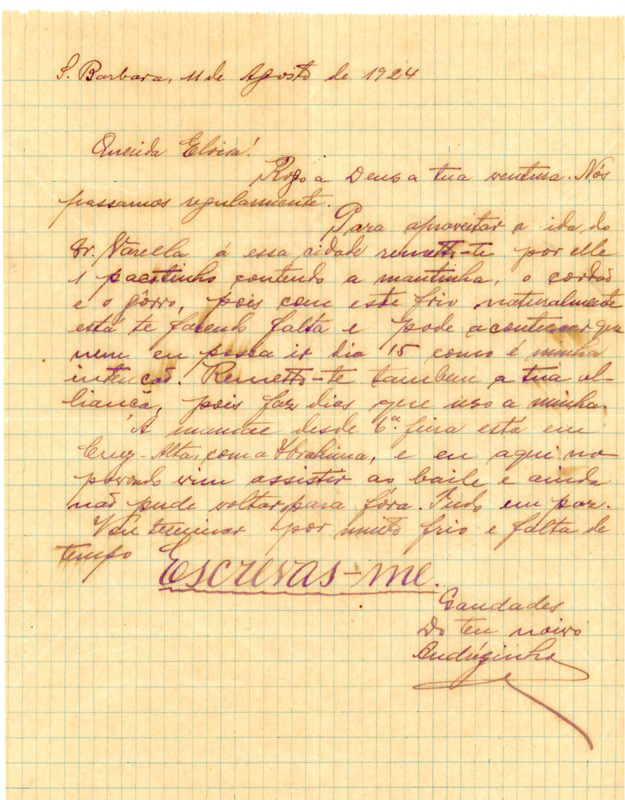 S. Barbara, 11 de Agosto de 1924
Querida Eloisa!
Rogo a Deus a tua ventura. Nós
passamos regularmente.
Para aproveitar a ida do
Sr. Varella á essa cidade remetti-te por elle
1 pacotinho contendo a mantinha, o cordão
e o gôrro, pois com este frio naturalmente
está te fazendo falta e pode acontecer que
nem eu possa ir dia 15 como é minha
intenção. Remetto-te tambem a tua al-
liança, pois faz dias que uso a minha.
A mamãe desde 6ª feira está em
Cruz-Alta, com a, e eu aqui no
povoado vim assistir ao baile e ainda
não pude voltar para fóra. Tudo em paz.
Vou terminar por muito frio e falta de
tempo
Escrevas-me.
Saudades
Do teu noivo
Andrézinho